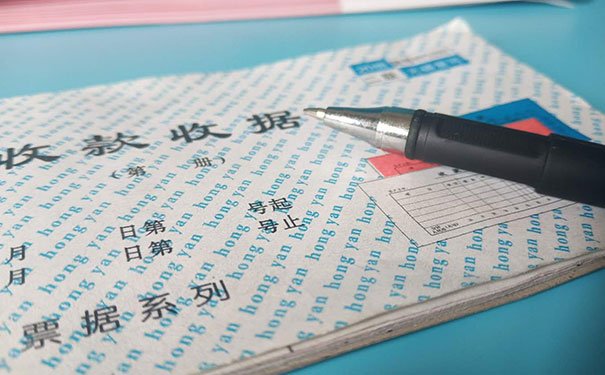 收款收据
（第 册）
月 日第 号起
月 日第 号止
票据系列
hong yan hong yan hong yan